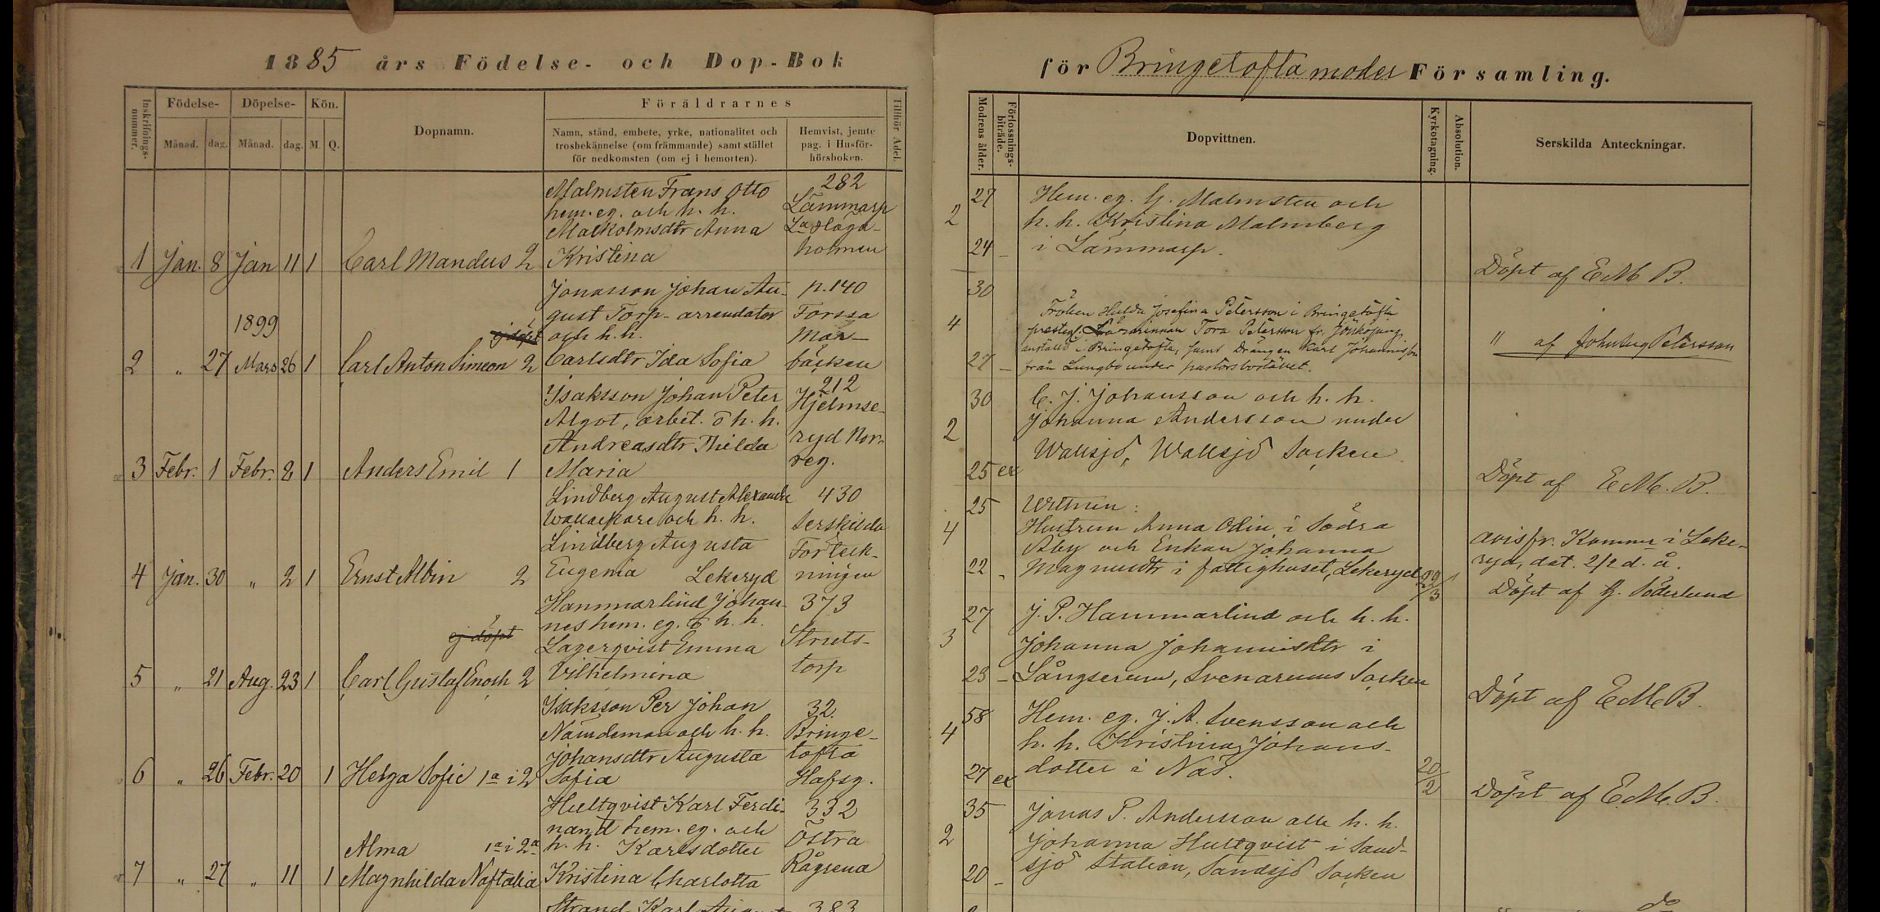 1885 års Födelse- och Dop-Bok
för Bringetofta moder Församling.
Inskrifnings-nummer.
Födelse-
Månad. dag.
Döpelse-
Månad. dag.
Kön.
M. Q.
Dopnamn.
Föräldrarnes
Namn, stånd, embete, yrke, nationalitet och
trosbekännelse (om främmande) samt stället
för nedkomsten (om ej i hemorten).
Hemvist, jemte
pag. i Husför-
hörsboken.
Tillhör Adel.
Modrens ålder.
Förlossnings-biträde.
Dopvittnen.
Kyrkotagning.
Absolution.
Serskilda Anteckningar.
Malmsten Frans Otto 282
hem. eg. och h. h. Lammarp
Malkolmsdtr Anna
1 Jan. 8 Jan 11 1 Carl Mandus 2 Kristina holmen
27 Hem. eg. G. Malmsten och
2 h. h. Kristina Malmberg
24 - i Lammarp.
Döpt af EMB.
Jonasson Johan Au- p. 140
1899 gust Torp-arrendator Forssa
ej döpt och h. h. Mar-
2 " 27 Mars 26 1 Carl Anton Simeon 2 Carlsdtr Ida Sofia bäcken
30
4 Fröken Hulda Josefina Petersson i Bringetofta
prestg. Lärarinnan Tora Petersson fr. Jönköping,
anställd i Bringetofta, samt Drängen Karl Johannisson
27 - från Lungbo under pastorsbostället.
" af Joh. Aug Petersson
Isaksson Johan Peter 212
Algot, arbet. o h. h. Hjelmse-
Andreasdtr Thilda ryd Nor-
3 Febr. 1 Febr. 8 1 Anders Emil 1 Maria reg.
30 C. J. Johansson och h. h.
2 Johanna Andersson under
Wallsjö, Wallsjö Socken
25 ex
Döpt af E.M.B.
Lindberg August Alexander 430
Wallackare och h. h. Serskilda
Lindberg Augusta Förteck-
4 Jan. 30 " 2 1 Ernst Albin 2 Eugenia Lekeryd ningen
25 Vittnen:
4 Hustrun Anna Odin i Södra
Åby och Enkan Johanna
22 - Magnusdtr i fattighuset, Lekeryd 29/3
avis fr. Komm. i Leke-
ryd, dat. 2/2 d. å.
Döpt af G. Söderlund
Hammarlind Johan- 373
nes hem. eg. o h. h.
ej döpt Lagerqvist Emma Struts-
5 " 21 Aug. 23 1 Carl Gustaf Enosh 2 Vilhelmina torp
27 J. P. Hammarlind och h. h.
3 Johanna Johannisdtr i
23 - Långserum, Svenarums Socken
Döpt af EMB.
Isaksson Per Johan 32.
Nämdeman och h. h. Bringe-
Johansdtr Augusta tofta
6 " 26 Febr. 20 1 Helga Sofie 1a i 2 Sofia Hafsg.
58 Hem. eg. J. A. Svensson och
4 h. h. Kristina Johans-
27 ex dotter i Näs. 20/2
Döpt af E.M.B.
Hultqvist Karl Ferdi- 332
nand hem. eg. och Östra
Alma 1a i 2a h. h. Karlsdotter Rågsena
7 " 27 " 11 1 Magnhilda Naftalia Kristina Charlotta
35 Jonas P. Andersson och h. h.
2 Johanna Hultqvist i Sand-
20 - sjö Station, Sandsjö Socken
Strand Karl August 383
do